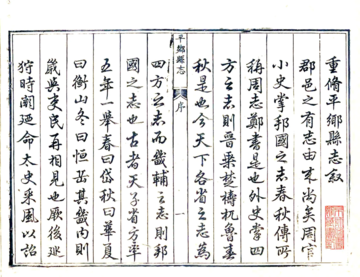 重脩平鄉縣志叙
郡邑之有志由来尚矣周官
小史掌邦國之志春秋傳所
稱周志鄭書是也外史掌四
方之志則晉乗楚檮杌魯春
秋是也今天下各省之志蔿
平鄉縣志
序
一
四方之志而畿輔之志則邦
國之志也古者天子省方率
五年一舉春曰岱秋曰華夏
曰衡山冬曰恒岳其畿内則
歲與吏民再相見也厥後廵
狩時闊廼命太史采風以詔